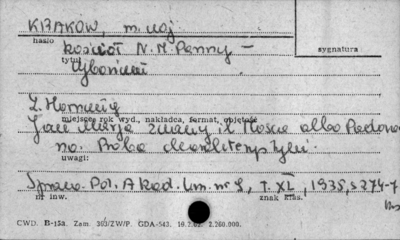 KRAKÓW, m. woj.
hasło
kościół N. M. Panny -
sygnatura
tytuł
cyborium
Z. Hornung
miejsce, rok wyd., nakładca, format, objętość
Jan Maria zwany il Mosca albo Padova-
no. Próba charakterystyki.
uwagi:
Spraw. Pol. Akad. Um. nr 9, T. XL, 1935, s 274-7
nr inw.
znak klas.
CWD. B-15a. Zam. 303/ZW/P. GDA-543. 2.260.000.